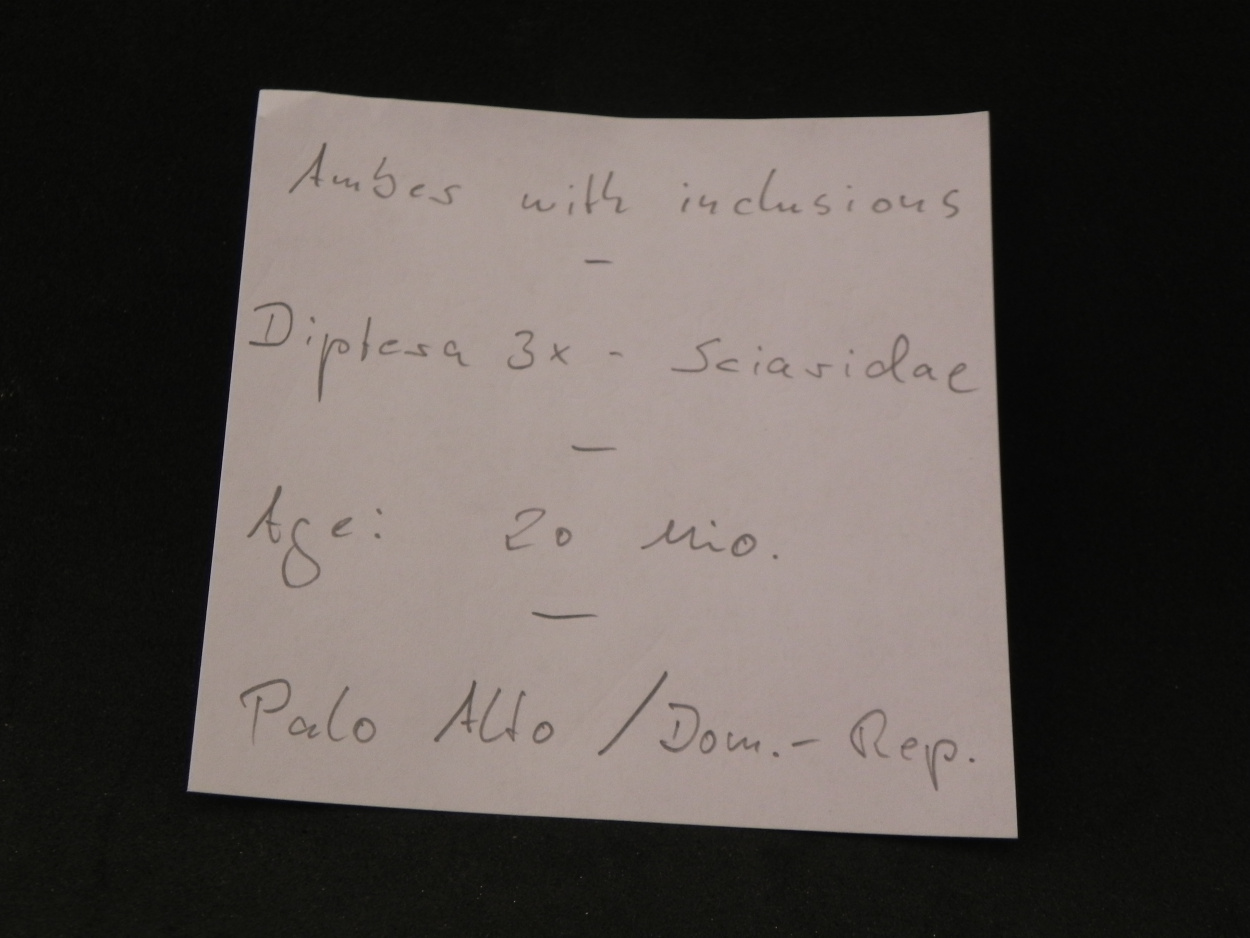 Amber with inclusions
-
Diptera 3x - Sciaridae
-
Age: 20 Mio.
-
Palo Alto / Dom.- Rep.